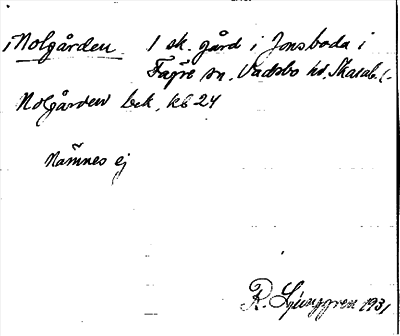 Nolgården 1 sk. gård i Jonsboda i
Fägre sn, Vadsbo hd, Skarab. l.
Nolgården bek. Kb 24
Nämnes ej
R. Ljunggren 1931